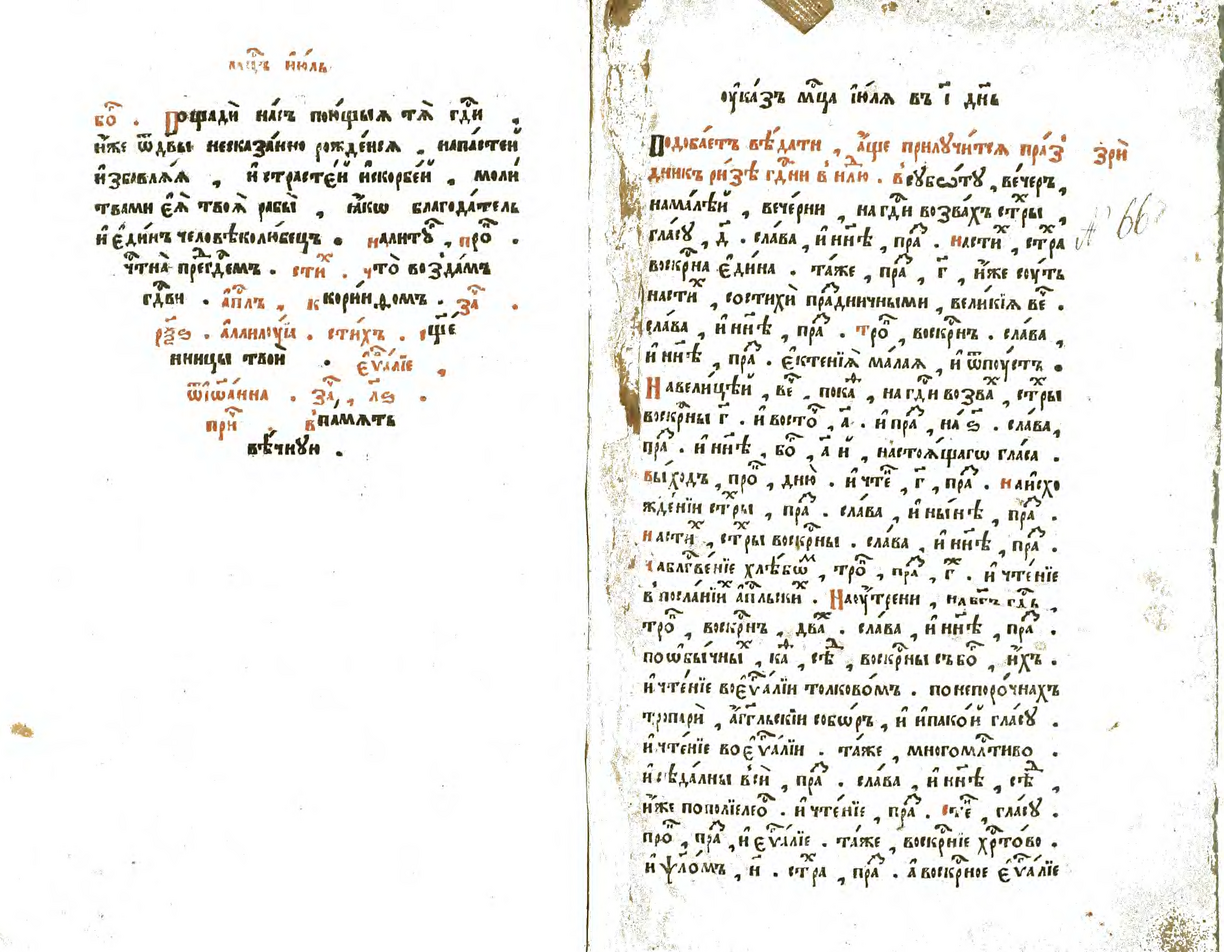 мц҃ъ ию́ль
бо҃ . Пощади̏ на́съ пою́щыѧ тѧ̀ гдⷭ҇и ,
и҆́же ѿ дв҃ы несказа́нно рожде́йсѧ , напа́стей
и҆збавлѧ́ѧ , и҆ страсте́й и҆ скорбе́й , моли́
твами є҆ѧ̀ твоѧ̀ рабы̀ , ꙗ҆́кѡ благода́тель
и҆ є҆ди́нъ человѣколю́бецъ . на литꙋ҃ , про҃ .
чⷭ҇тна̀ пре́д гдⷭ҇емъ . сти́х . что̀ возда́мъ
гдⷭ҇ви . а҆пⷭ҇лъ , к корі́нѳомъ . за҃ .
рѯ҃ѕ . а҆ллилꙋ́їа . сти́хъ . свѧще́
нницы твоѝ . є҆ѵⷢ҇а́лїе ,
ѿ і҆ѡа́нна . за҃ , л҃ѕ .
при҃ . в па́мѧть
вѣ́чнꙋю .
оу҆ка́зъ мцⷭ҇а і҆ю́лѧ въ і҃ де́нь
Подоба́етъ вѣ́дати , а҆́ще прилꙋчи́тсѧ пра́з
зрѝ
дникъ ри́зѣ гдⷭ҇ни в нⷣлю . в сꙋббѡ́тꙋ , ве́черъ ,
на ма́лѣй , вече́рни , на гдⷭ҇и возва́хъ стⷯры ,
гла́сꙋ , д҃ . сла́ва , и҆ нн҃ѣ , праⷥ . на стиⷯ , стⷯра
воскрⷭ҇на є҆ди́на . та́же , праⷥ , г҃ , и҆̀же сꙋ́ть
на стиⷯ , со стихѝ праⷥдничными , вели́кїѧ ве҃ .
сла́ва , и҆ нн҃ѣ , праⷥ . тро҃ , воскрⷭ҇нъ . сла́ва ,
и҆ нн҃ѣ , праⷥ . є҆ктенїѧ̀ ма́лаѧ , и҆ ѿпꙋ́стъ .
На вели́цѣй , ве҃ , пока҃ , на гдⷭ҇и возваⷯ , стⷯры
воскрⷭ҇ны г҃ . и҆ восто҃ , а҃ . и҆ праⷥ , на ѕ҃ . сла́ва ,
праⷥ . и҆ нн҃ѣ , бо҃ , а҃ й , настоѧ́щагѡ гла́са .
вы́ходъ , про҃ , дню̀ . и҆ чте҃ , г҃ , праⷥ . на и҆схо
жде́нїи стⷯры , праⷥ . сла́ва , и҆ ны́нѣ , праⷥ .
на стиⷯ , стⷯры воскрⷭ҇ны . сла́ва , и҆ нн҃ѣ , праⷥ .
на блгⷭ҇ве́нїе хлѣ́бѡⷨ , тро҃ , праⷥ , г҃ . и҆ чте́нїе
в посла́нїи а҆пⷭ҇льскиⷯ . На оу҆́трени , на бг҃ъ гдⷭ҇ь ,
тро҃ , воскрⷭ҇нъ , два́ . сла́ва , и҆ нн҃ѣ , праⷥ .
по ѡ҆бы́чныⷯ , каⷴ , сѣⷣ , воскрⷭ҇ны съ бо҃ , и҆́хъ .
и҆ чте́нїе во є҆ѵⷢ҇а́лїи толково́мъ . по непоро́чнахъ
тропарѝ , а҆́гг҃льскїи собѡ́ръ , и҆ и҆пако́й гла́сꙋ .
и҆ чте́нїе во є҆ѵⷢ҇а́лїи . та́же , многомлⷭ҇тиво .
и҆ сѣда́лны всѝ , праⷥ . сла́ва , и҆ нн҃ѣ , сѣⷣ ,
и҆́же по полїелео҃ . и҆ чте́нїе , праⷥ . сте҃ , гла́сꙋ .
про҃ , праⷥ , и҆ є҆ѵⷢ҇а́лїе . та́же , воскрⷭ҇нїе хрⷭ҇то́во .
и҆ ѱало́мъ , н҃ . стⷯра , праⷥ . а҆ воскрⷭ҇ное є҆ѵⷢ҇а́лїе